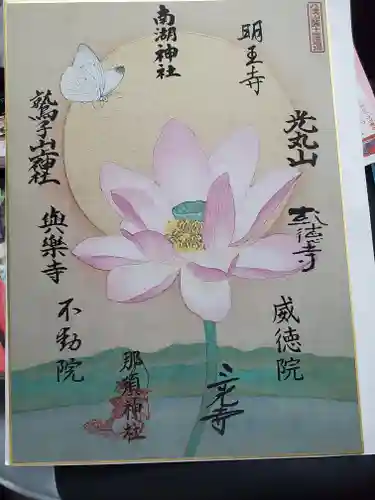 南湖神社
明王寺
光丸山
威徳院
三光寺
那須神社
不動院
與楽寺
鷲子山神社